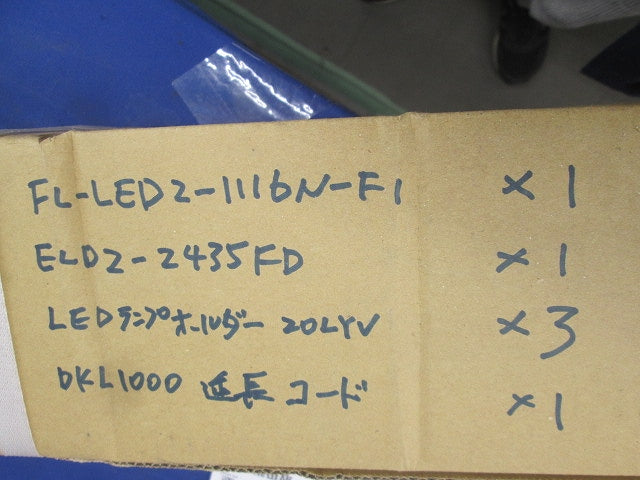 FL-LED2-1116N-F1 ×1
ELD2-2435FD ×1
LEDテープホールダー 20LYV ×3
DKL1000 延長コード ×1